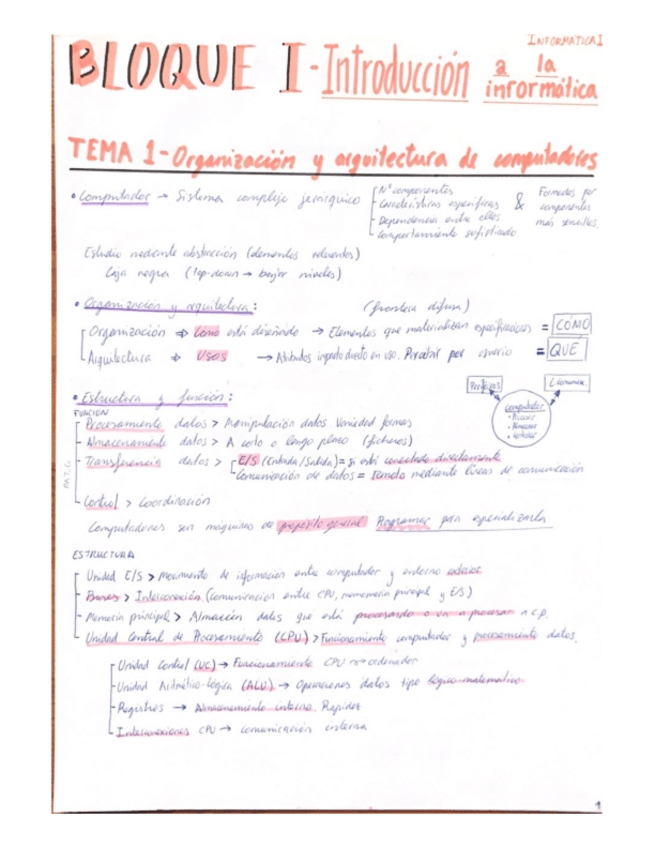 INFORMATICA I
BLOQUE I - Introducción a la informática
TEMA 1 - Organización y arquitectura de computadores
• Computador → Sistema complejo jerárquico
Nº componentes
Características específicas
Dependencia entre ellos
Comportamiento sofisticado
& Formados por componentes más sencillos.
Estudio mediante abstracción (elementos relevantes)
Caja negra (top-down → bajar niveles)
• Organización y arquitectura: (frontera difusa)
Organización ⇒ Como está diseñado → Elementos que materializan especificaciones = CÓMO
Arquitectura ⇒ Usos → Atributos impacto directo en uso. Percibir por usuario = QUÉ
• Estructura y función:
Periféricos
computador
• Procesar
• Almacenar
• Controlar
FUNCIÓN
Procesamiento datos > Manipulación datos. Variedad formas
Almacenamiento datos > A corto o largo plazo (ficheros)
Transferencia datos > E/S (Entrada/Salida) = si está conectado directamente
Comunicación de datos = Remoto mediante líneas de comunicación
Control > Coordinación
P.A.T.C.
Computadores son máquinas de propósito general Programar para especializarla
ESTRUCTURA
Unidad E/S > Movimiento de información entre computador y entorno exterior
Buses > Interconexión (comunicación entre CPU, memoria principal y E/S)
Memoria principal > Almacén datos que está procesando o va a procesar a c.p.
Unidad Central de Procesamiento (CPU) > Funcionamiento computador y procesamiento datos.
Unidad Control (UC) → Funcionamiento CPU → ordenador
Unidad Aritmético-lógica (ALU) → Operaciones datos tipo lógico matemático
Registros → Almacenamiento interno. Rapidez
Interconexiones CPU → comunicación interna
1